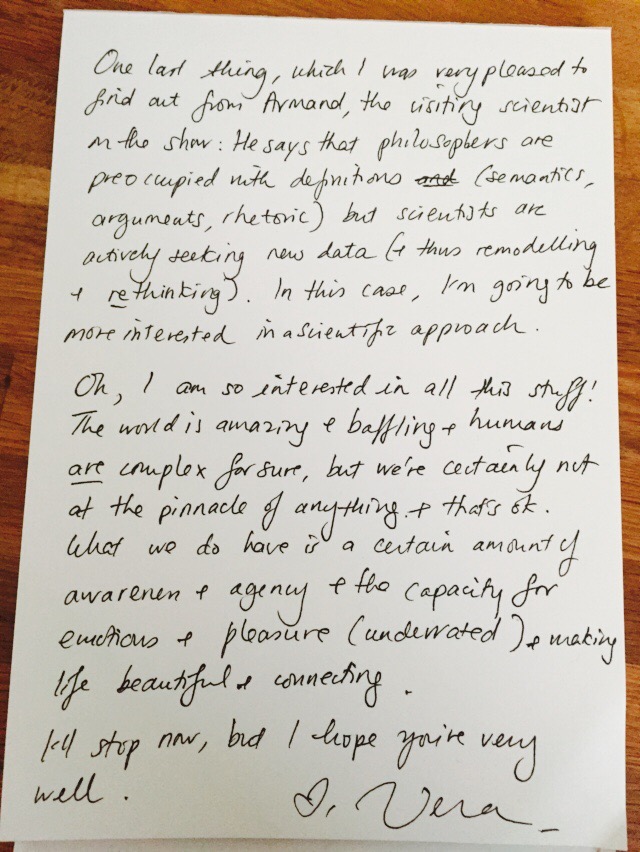 One last thing, which I was very pleased to
find out from Armand, the visiting scientist
on the show: He says that philosophers are
preoccupied with definitions and (semantics,
arguments, rhetoric) but scientists are
actively seeking new data (+ thus remodelling
+ rethinking). In this case, I'm going to be
more interested in a scientific approach.
Oh, I am so interested in all this stuff!
The world is amazing + baffling + humans
are complex for sure, but we're certainly not
at the pinnacle of anything + that's ok.
What we do have is a certain amount of
awareness + agency + the capacity for
emotions + pleasure (underrated) + making
life beautiful + connecting.
I'll stop now, but I hope you're very
well.
♡, Vera